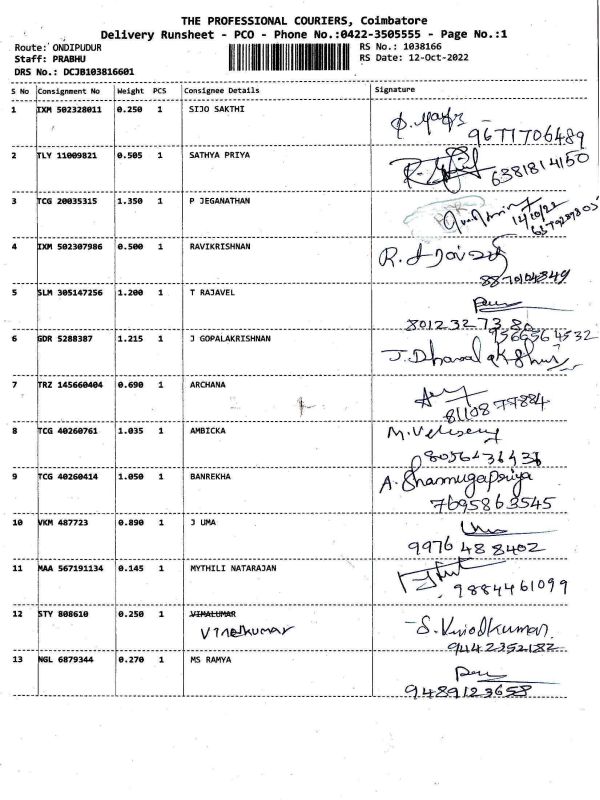 THE PROFESSIONAL COURIERS, Coimbatore
Delivery Runsheet - PCO - Phone No.:0422-3505555 - Page No.:1
Route: ONDIPUDUR RS No.: 1038166
Staff: PRABHU RS Date: 12-Oct-2022
DRS No.: DCJB103816601
S No Consignment No Weight PCS Consignee Details Signature
1 IXM 502328011 0.250 1 SIJO SAKTHI
9677706489
2 TLY 11009821 0.505 1 SATHYA PRIYA
6381814150
3 TCG 20035315 1.350 1 P JEGANATHAN
4 IXM 502307986 0.500 1 RAVIKRISHNAN
8870104849
5 SLM 305147256 1.200 1 T RAJAVEL
8012327380
6 GDR 5288387 1.215 1 J GOPALAKRISHNAN
9566564532
7 TRZ 145660404 0.690 1 ARCHANA
8110877884
8 TCG 40260761 1.035 1 AMBICKA
9 TCG 40260414 1.050 1 BANREKHA A. Shamugapriya
7695863545
10 VKM 487723 0.890 1 J UMA
9976488402
11 MAA 567191134 0.145 1 MYTHILI NATARAJAN
9884461099
12 STY 808610 0.250 1 VIMALUMAR
Vinodkumar S. Vinodkumar
9442352182
13 NGL 6879344 0.270 1 MS RAMYA
9489123658